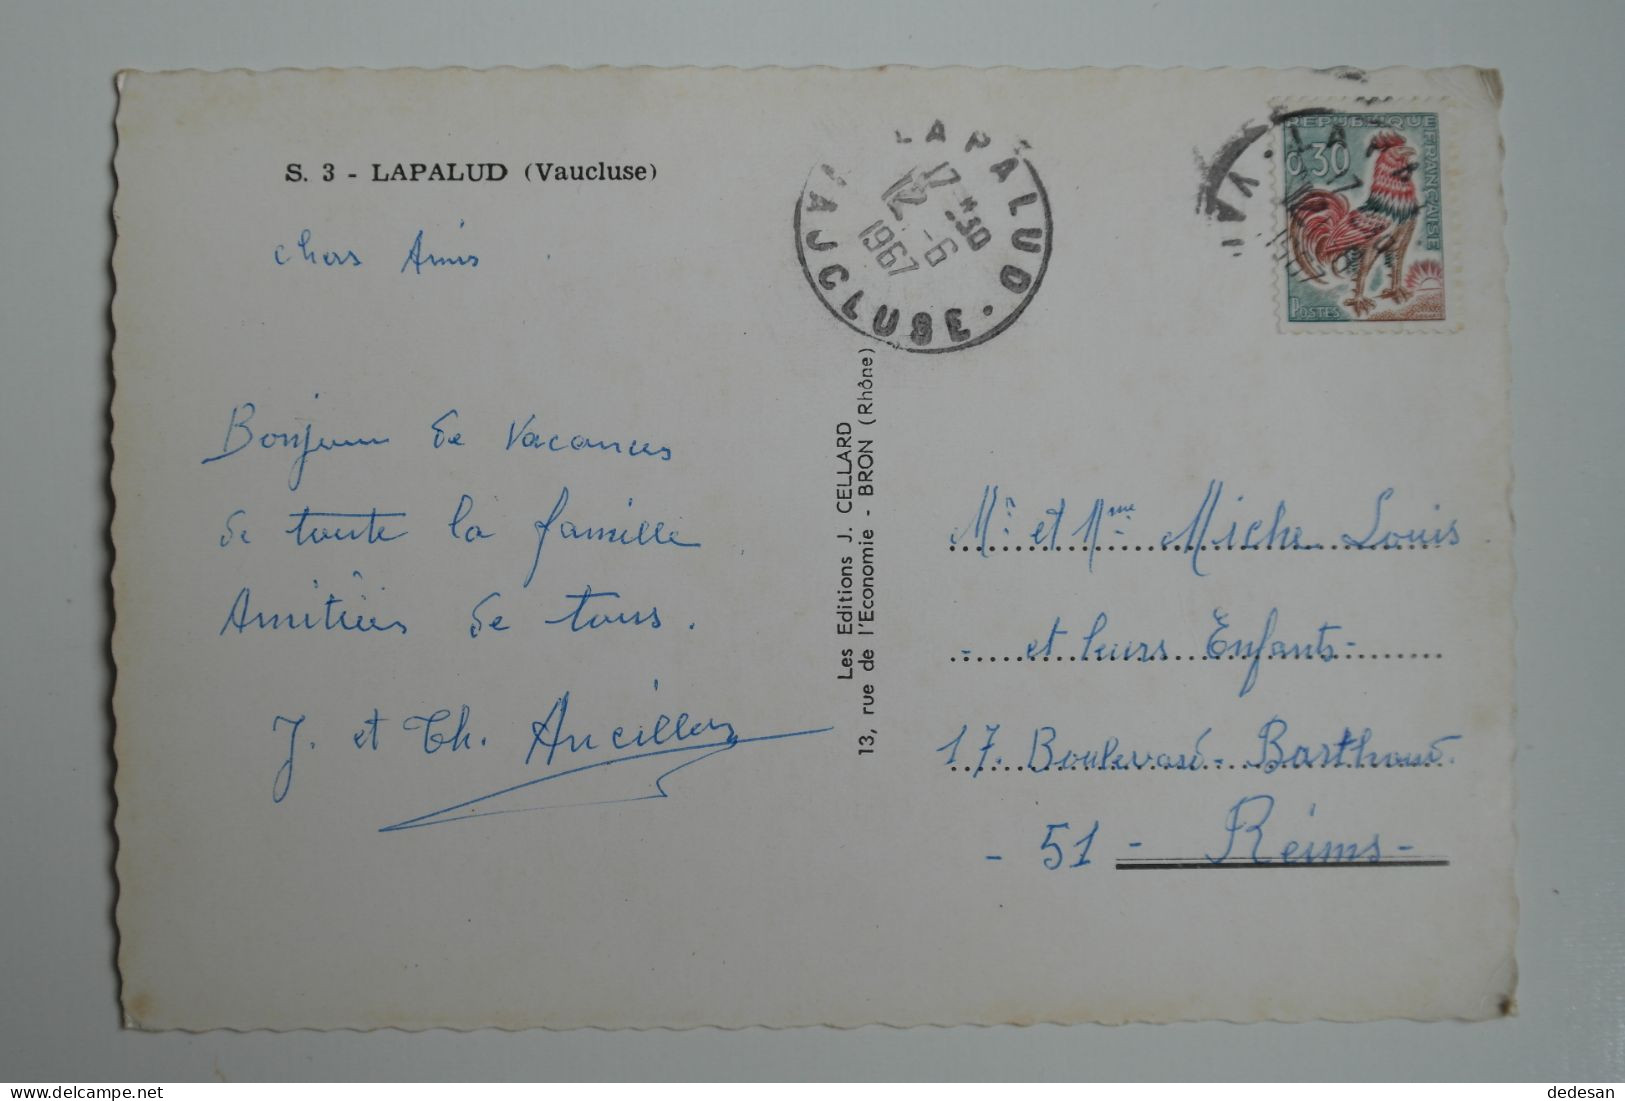 S. 3 - LAPALUD (Vaucluse)
chers Amis
Bonjour de Vacances
de toute la famille
Amitiés de tous.
J. et Th. Ancillon
Les Editions J. CELLARD
13, rue de l'Economie - BRON (Rhône)
LAPALUD
17 H 30
12 - 6
1967
VAUCLUSE
REPUBLIQUE
FRANÇAISE
0,30
POSTES
Mr et Mme Miche Louis
- et leurs Enfants -
17. Boulevard. Barthoud.
- 51 - Reims -
dedesan